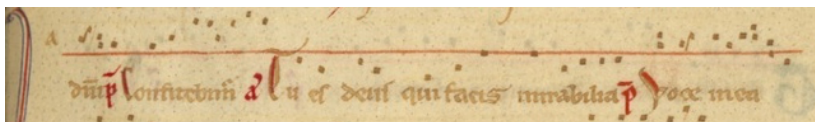 a
dñi p̄ Confitebim̄ a᷑ Tu es deus qui facis mirabilia p̄ Voce mea